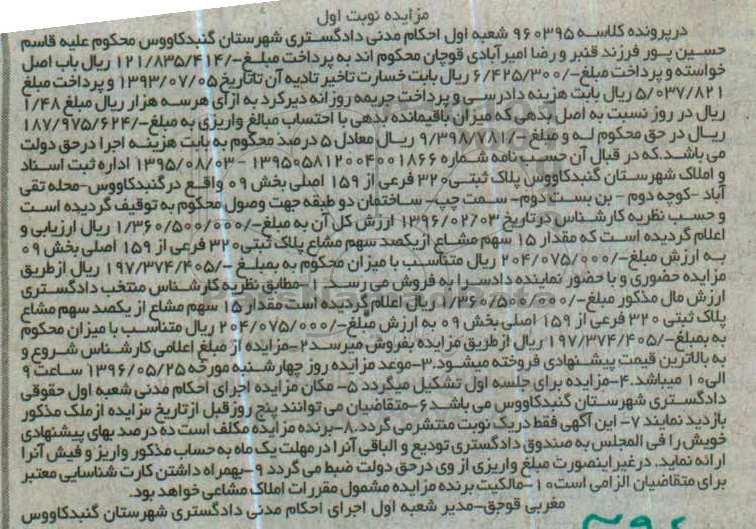 مزایده نوبت اول
درپرونده کلاسه ۹۶۰۳۹۵ شعبه اول احکام مدنی دادگستری شهرستان گنبدکاووس محکوم علیه قاسم
حسین پور فرزند قنبر و رضا امیرآبادی قوچان محکوم اند به پرداخت مبلغ-/۱۲۱/۸۳۵/۴۱۴ ریال باب اصل
خواسته و پرداخت مبلغ-/۶/۴۲۵/۳۰۰ ریال بابت خسارت تاخیر تادیه آن تاتاریخ ۱۳۹۳/۰۷/۰۵ و پرداخت مبلغ
۵/۰۳۷/۸۲۱ ریال بابت هزینه دادرسی و پرداخت جریمه روزانه دیرکرد به ازای هرسه هزار ریال مبلغ ۱/۴۸
ریال در روز نسبت به اصل بدهی که میزان باقیمانده بدهی با احتساب مبالغ واریزی به مبلغ-/۱۸۷/۹۷۵/۶۲۴
ریال در حق محکوم له و مبلغ-/۹/۳۹۸/۷۸۱ ریال معادل ۵ درصد محکوم به بابت هزینه اجرا درحق دولت
می باشد.که در قبال آن حسب نامه شماره ۱۳۹۵۰۵۸۱۲۰۰۴۰۰۱۸۶۶ - ۱۳۹۵/۰۸/۰۳ اداره ثبت اسناد
و املاک شهرستان گنبدکاووس پلاک ثبتی ۳۲۰ فرعی از ۱۵۹ اصلی بخش ۰۹ واقع درگنبدکاووس-محله تقی
آباد -کوچه دوم - بن بست دوم- سمت چپ- ساختمان دو طبقه جهت وصول محکوم به توقیف گردیده است
و حسب نظریه کارشناس درتاریخ ۱۳۹۶/۰۲/۰۳ ارزش کل آن به مبلغ-/۱/۳۶۰/۵۰۰/۰۰۰ ریال ارزیابی و
اعلام گردیده است که مقدار ۱۵ سهم مشاع ازیکصد سهم مشاع پلاک ثبتی ۳۲۰ فرعی از ۱۵۹ اصلی بخش ۰۹
به ارزش مبلغ-/۲۰۴/۰۷۵/۰۰۰ ریال متناسب با میزان محکوم به بمبلغ -/۱۹۷/۳۷۴/۴۰۵ ریال ازطریق
مزایده حضوری و با حضور نماینده دادسرا به فروش می رسد. ۱-مطابق نظریه کارشناس منتخب دادگستری
ارزش مال مذکور مبلغ-/۱/۳۶۰/۵۰۰/۰۰۰ ریال اعلام گردیده است مقدار ۱۵ سهم مشاع از یکصد سهم مشاع
پلاک ثبتی ۳۲۰ فرعی از ۱۵۹ اصلی بخش ۰۹ به ارزش مبلغ-/۲۰۴/۰۷۵/۰۰۰ ریال متناسب با میزان محکوم
به بمبلغ-/۱۹۷/۳۷۴/۴۰۵ ریال ازطریق مزایده بفروش میرسد ۲-مزایده از مبلغ اعلامی کارشناس شروع و
به بالاترین قیمت پیشنهادی فروخته میشود.۳-موعد مزایده روز چهارشنبه مورخه ۱۳۹۶/۰۵/۲۵ ساعت ۹
الی ۱۰ میباشد.۴-مزایده برای جلسه اول تشکیل میگردد ۵- مکان مزایده اجرای احکام مدنی شعبه اول حقوقی
دادگستری شهرستان گنبدکاووس می باشد ۶-متقاضیان می توانند پنج روز قبل ازتاریخ مزایده ازملک مذکور
بازدید نمایند ۷- این آگهی فقط دریک نوبت منتشر می گردد.۸-برنده مزایده مکلف است ده درصد بهای پیشنهادی
خویش را فی المجلس به صندوق دادگستری تودیع و الباقی آنرا درمهلت یک ماه به حساب مذکور واریز و فیش آنرا
ارائه نماید. درغیراینصورت مبلغ واریزی از وی درحق دولت ضبط می گردد ۹-بهمراه داشتن کارت شناسایی معتبر
برای متقاضیان الزامی است ۱۰-مالکیت برنده مزایده مشمول مقررات املاک مشاعی خواهد بود.
مغربی قوجق-مدیر شعبه اول اجرای احکام مدنی دادگستری شهرستان گنبدکاووس